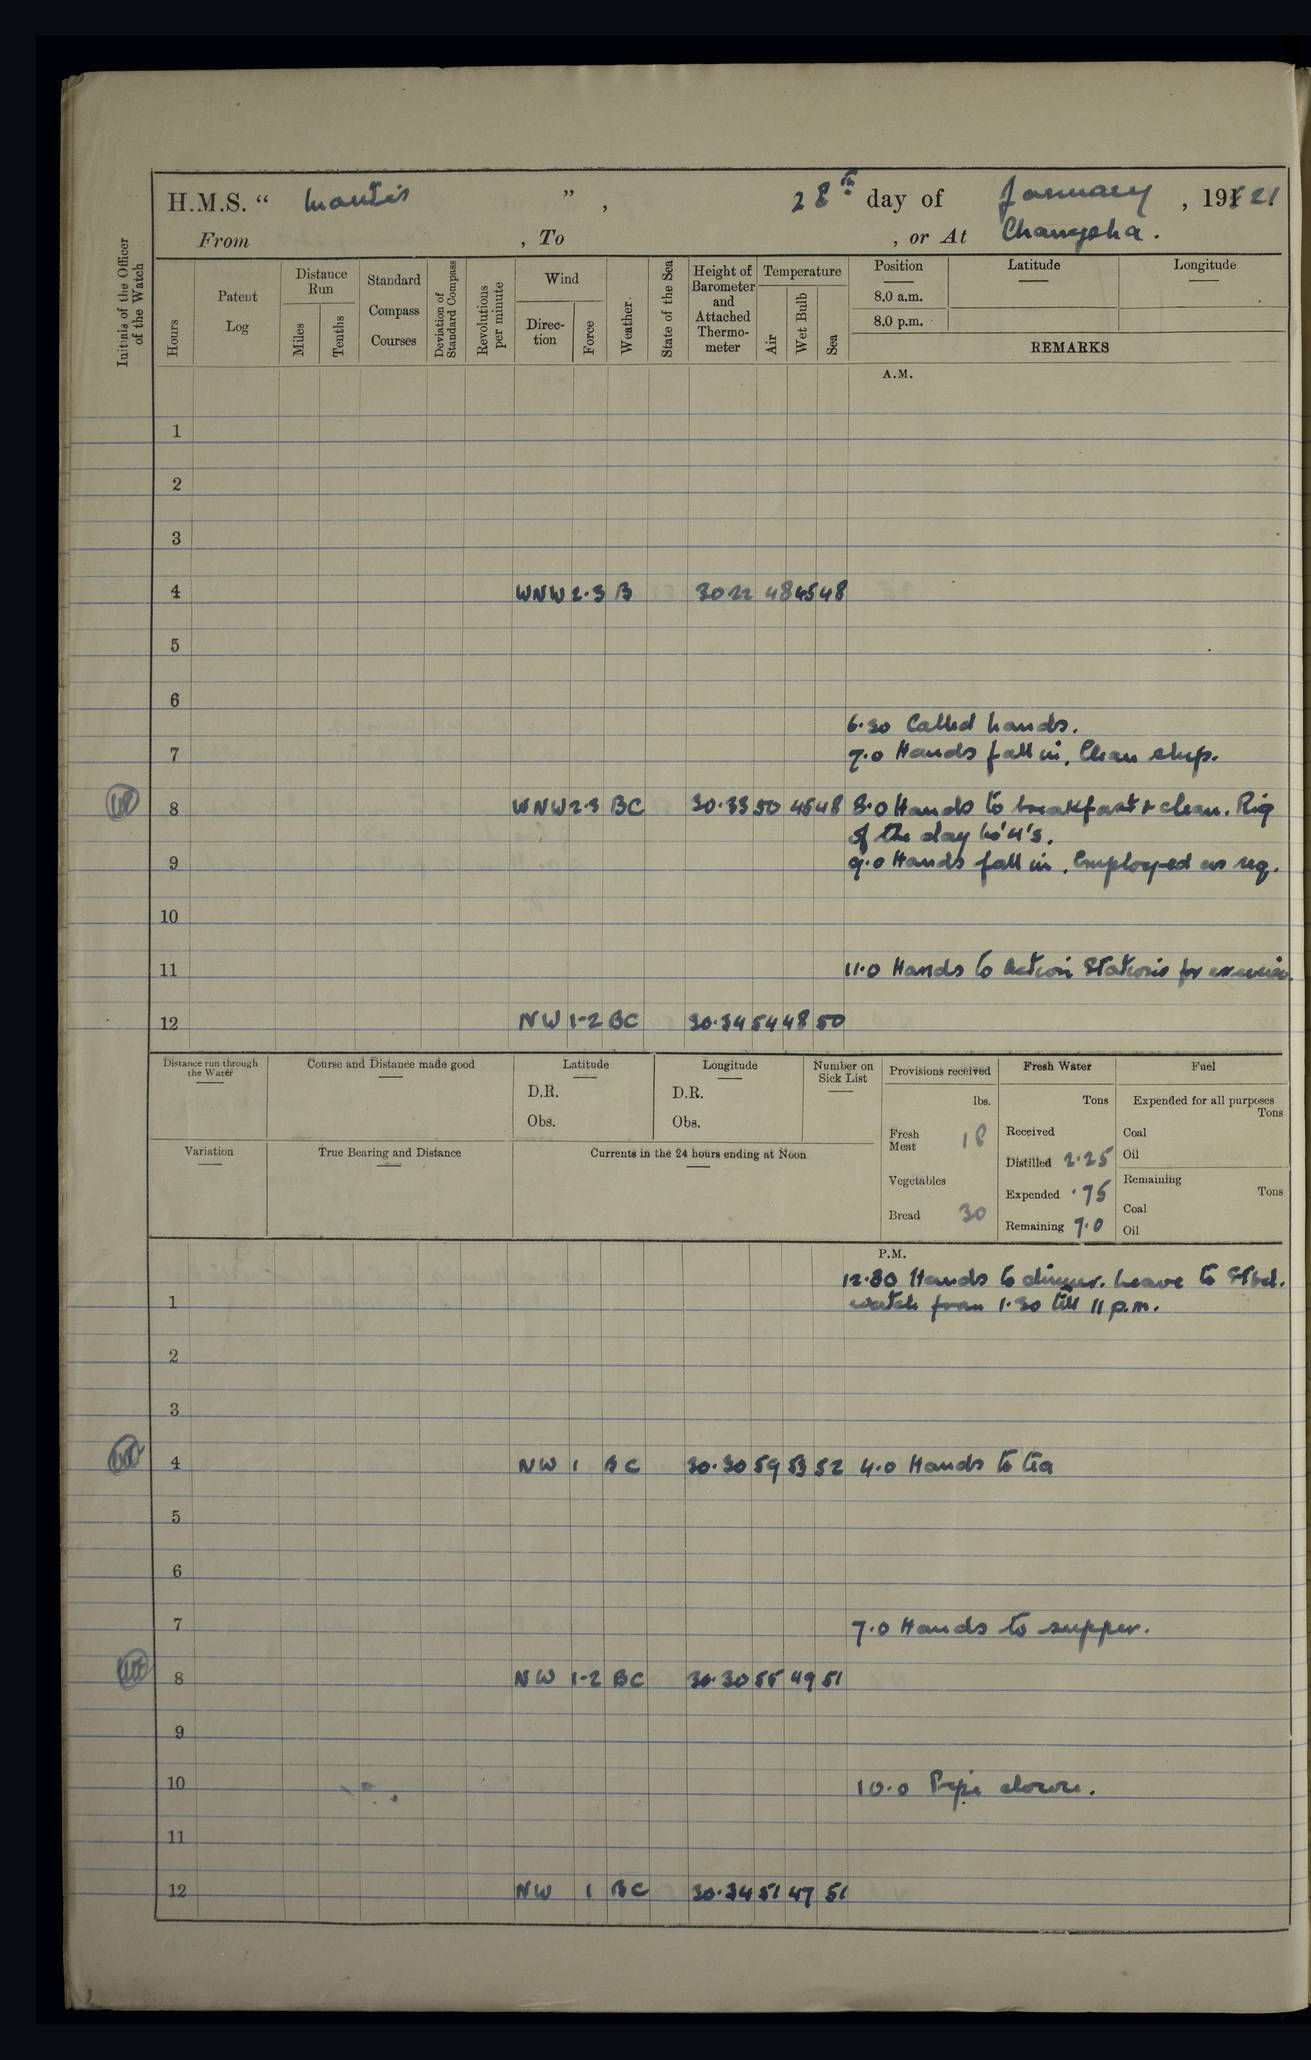 H.M.S. “ Mantis ” , 28th day of January , 191 21
From , To , or At Changsha.
Initials of the Officer of the Watch
Hours
Patent Log
Distance Run
Miles
Tenths
Standard Compass Courses
Deviation of Standard Compass
Revolutions per minute
Wind
Direc-tion
Force
Weather.
State of the Sea
Height of Barometer and Attached Thermo-meter
Temperature
Air
Wet Bulb
Sea
Position
8.0 a.m.
8.0 p.m.
Latitude
Longitude
REMARKS
A.M.
1
2
3
4 WNW 2·3 B 30 22 48 45 48
5
6
6·30 Called hands.
7 7·0 Hands fall in. Clean ship.
8 WNW 2·3 BC 30·33 50 45 48 8·0 Hands to breakfast & clean. Rig
of the day No 4's.
9 9·0 Hands fall in. Employed as req.
10
11 11·0 Hands to Action Stations for exercise.
12 NW 1-2 BC 30·34 54 48 50
Distance run through the Water
Course and Distance made good
Latitude
D.R.
Obs.
Longitude
D.R.
Obs.
Number on Sick List
Provisions received
lbs.
Fresh Meat 18
Vegetables
Bread 30
Fresh Water
Tons
Received
Distilled 2·25
Expended ·75
Remaining 7·0
Fuel
Expended for all purposes
Tons
Coal
Oil
Remaining
Tons
Coal
Oil
Variation
True Bearing and Distance
Currents in the 24 hours ending at Noon
P.M.
12·30 Hands to dinner. Leave to Stbd.
1 watch from 1·30 till 11 p.m.
2
3
4 NW 1 BC 30·30 59 53 52 4·0 Hands to tea
5
6
7 7·0 Hands to supper.
8 NW 1-2 BC 30·30 55 49 51
9
10 10·0 Pipe down.
11
12 NW 1 BC 30·34 51 47 51